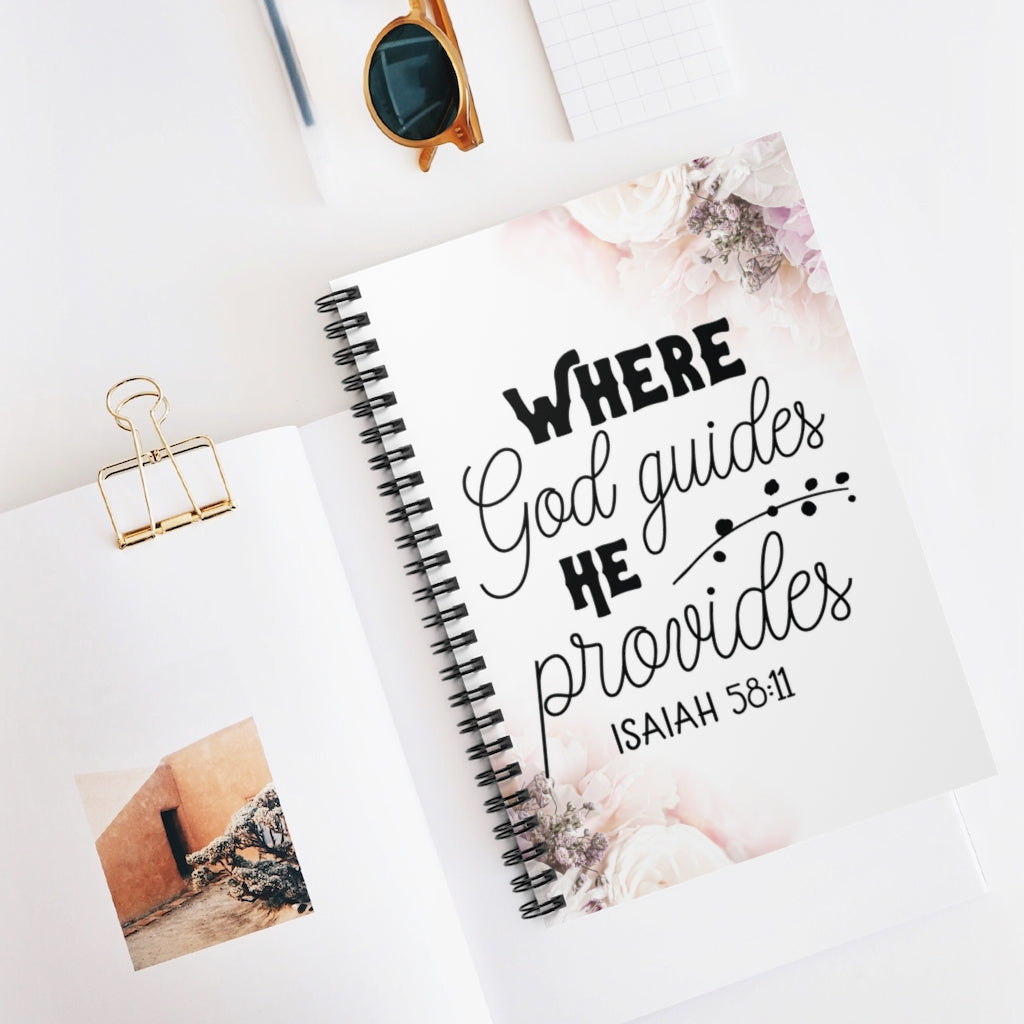 WHERE
God guides
HE
provides
ISAIAH 58:11